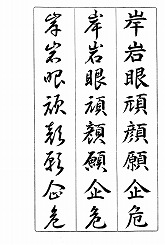 岸岩眼頑顔願企危
岸岩眼頑顔願企危
岸岩眼頑顔願企危